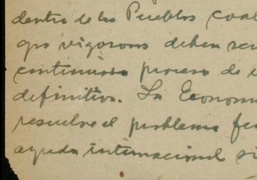 dentro de los Pueblos
vigorosos deben ser
continuado proceso de
definitivo. La Econom
resuelve el problema
ayuda internacional si